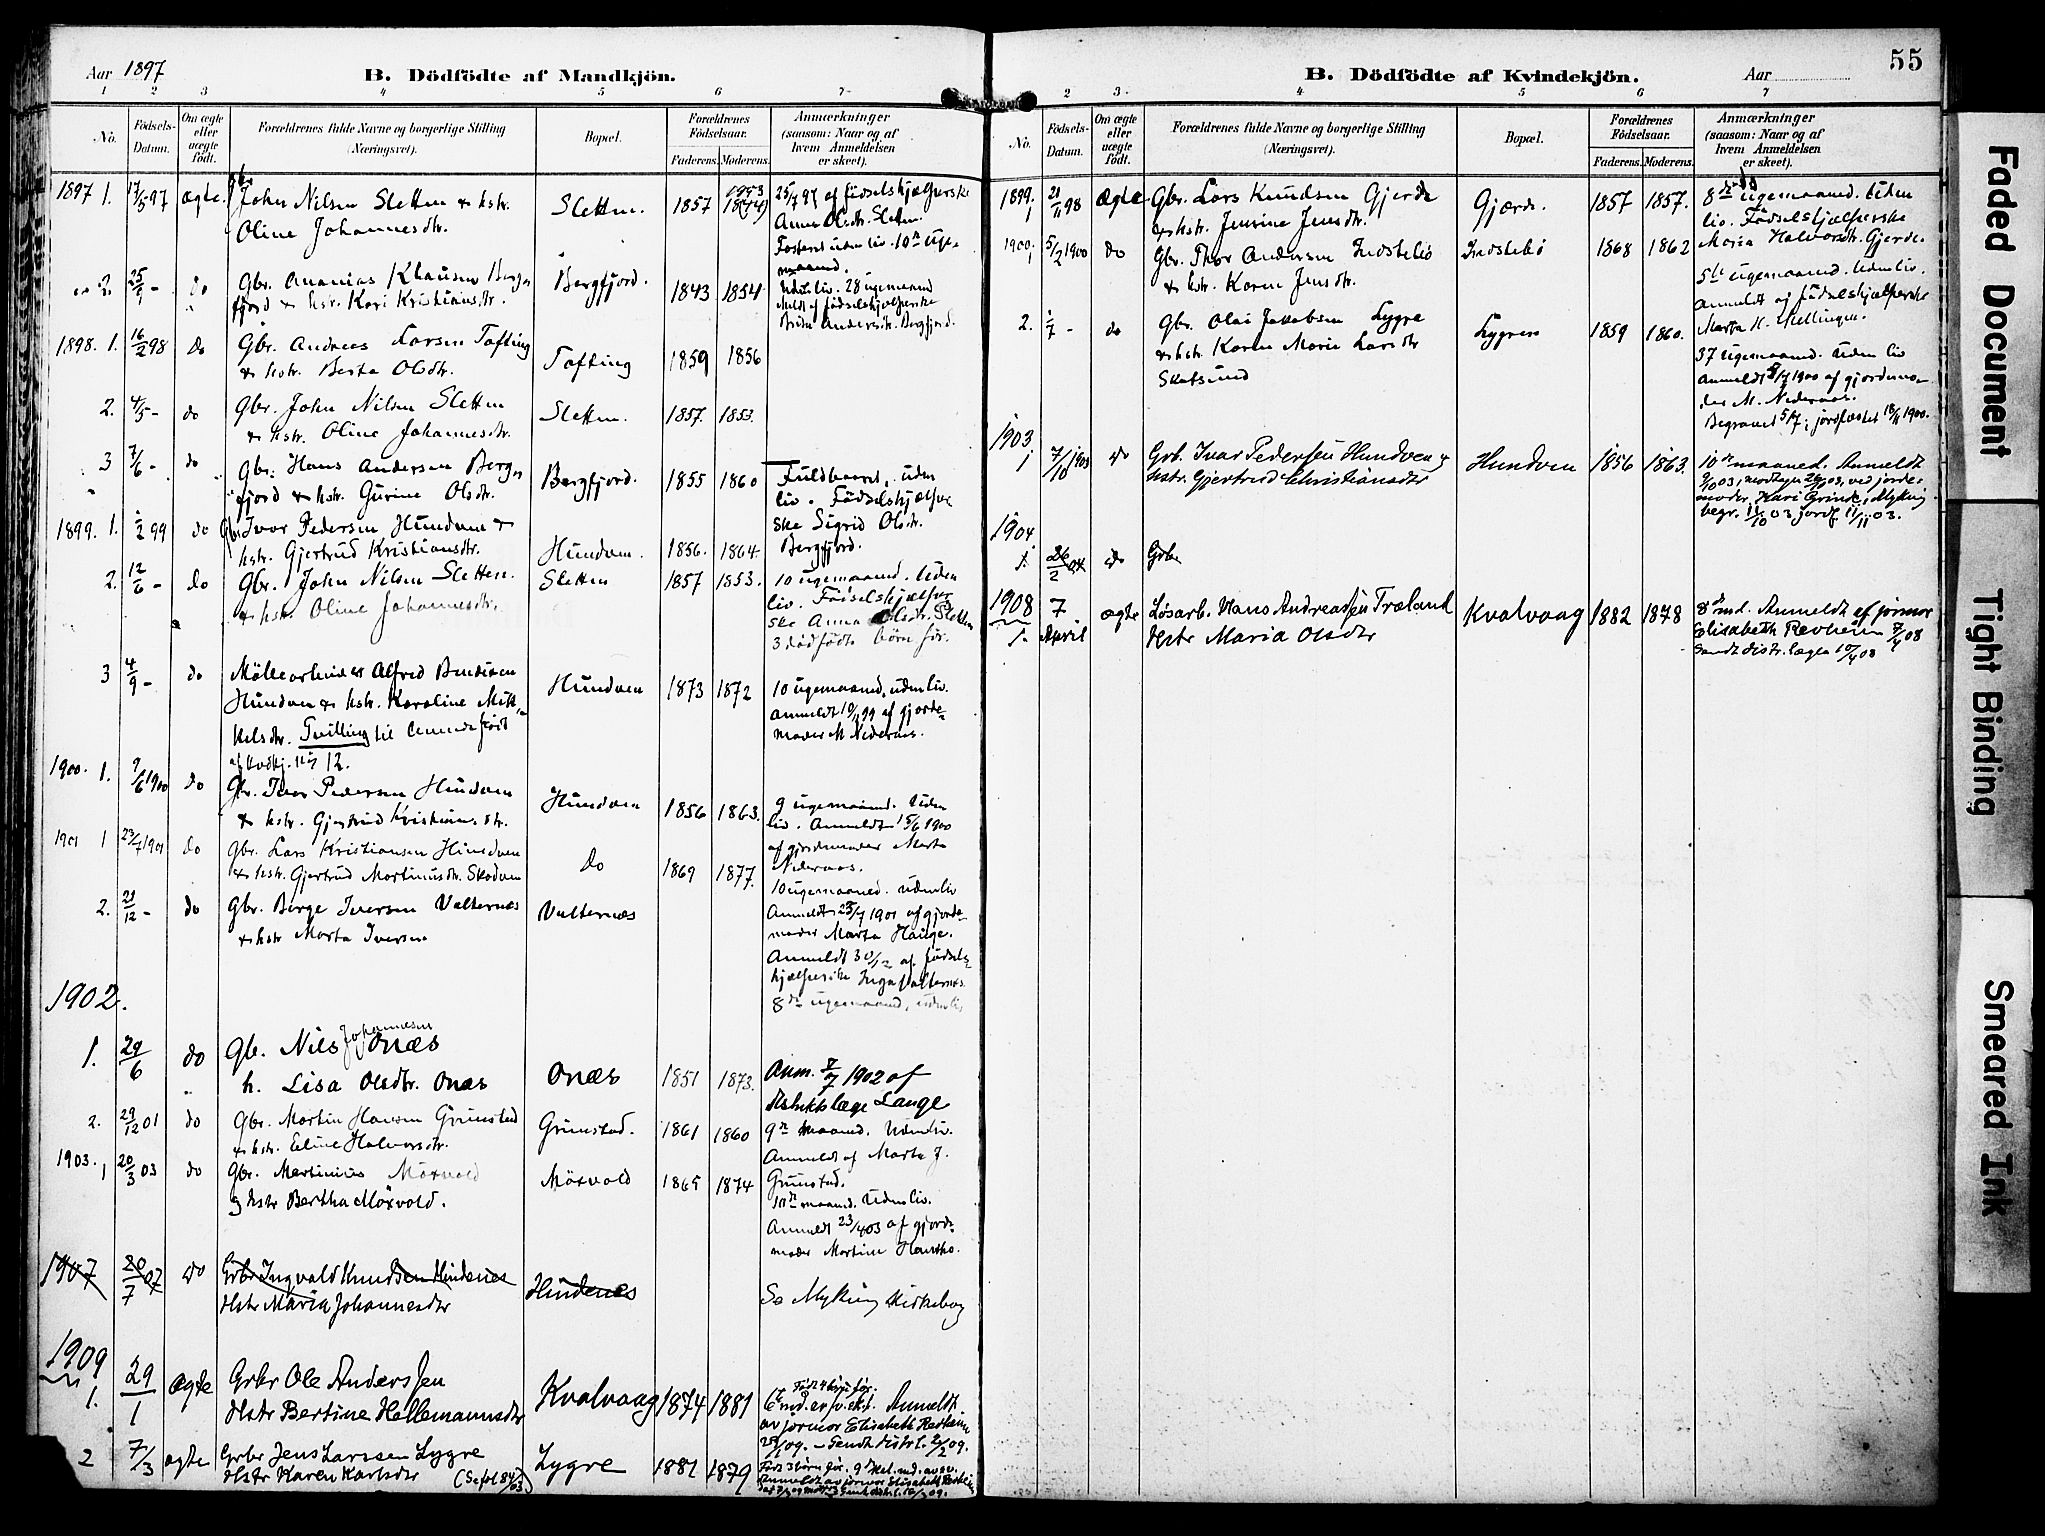 Aar 1897
B. Dödfödte af Mandkjön.
1 2 3 4 5 6 7
No.
Födsels-Datum.
Om ægte eller uægte födt.
Forældrenes fulde Navne og borgerlige Stilling (Næringsvei).
Bopæl.
Forældrenes Födselsaar.
Faderens. Moderens.
Anmærkninger (saasom: Naar og af hvem Anmeldelsen er skeet).
1897 1. 17/5 97 ægte. John Nilsen Sletten & hstr. Oline Johannesdtr. Sletten. 1857 1853
25/7 97 af födselshjælperske
Anna Olsdtr. Sletten.
Fosteret uden liv. 10de uge-
maaned.
2. do Gbr. Ananias Klausen Berge
fjord & hstr. Kari Kristiansdtr. Bergfjord. 1843 1854
Uden liv. 28 ugemaaned
Meldt af födselshjælperske
Brita Andersdtr. Bergfjord.
1898. 1. 16/2 98 do Gbr. Andreas Larsen Tofting
& hstr. Berta Olsdtr. Tofting 1859 1856
2. 4/5 - do Gbr. John Nilsen Sletten
& hstr. Oline Johannesdtr. Sletten. 1857. 1853.
3 7/6 - do Gbr. Hans Andersen Berg-
fjord & hstr. Gurine Olsdtr. Bergfjord. 1855 1860
Fuldbaaret, uden
liv. Födselshjælper
ske Sigrid Olsdtr.
Bergfjord.
1899. 1. 1/2 99 do Gbr. Ivar Pedersen Hundven &
hstr. Gjertrud Kristiansdtr. Hundven. 1856. 1864
2. 12/6 - do Gbr. John Nilsen Sletten.
& hstr. Oline Johannesdtr. Sletten 1857 1853.
10 ugemaaned. Uden
liv. Födselshjælper
ske Anna Olsdtr. Sletten
3 dödfödte börn för.
3 4/9 - do Möllearbeider Alfred Bendixen
Hundven & hstr. Karoline Mik-
kelsdtr. Tvilling til levendefödt
af kvdkj. No 12. Hundven 1873 1872
10 ugemaaned, uden liv.
Anmeldt 10/9 99 af gjorde-
moder M. Nederaas.
1900. 1. 9/6 1900 do Gbr. Ivar Pedersen Hundven
& hstr. Gjertrud Kristiansdtr. Hundven 1856 1863.
9 ugemaaned. Uden
liv. Anmeldt 15/6 1900
af gjordemoder Marta
Nederaas.
1901 1 23/7 1901 do Gbr. Lars Kristiansen Hundven
& hstr. Gjertrud Martinusdtr. Skodven do 1869 1877.
10 ugemaaned. Uden liv
Anmeldt 25/7 1901 af gjorde-
moder Marta Hauge.
2. 21/12 - do Gbr. Berge Iversen Valternæs
& hstr Marta Iversen Valternæs
Anmeldt 30/12 af födsels-
hjælperske Inga Valternes
8de ugemaaned, uden liv
1902.
1. 29/6 do Gb. Nils Johannesen Onæs
h. Lisa Olsdtr. Onæs Onæs 1851 1873.
Anm. 2/7 1902 af
distriktslæge Lange
2. 29/12 01 do Gbr. Martin Hansen Grimstad
& hstr. Eline Halvorsdtr. Grimstad. 1861 1860
9de maaned. Uden liv.
Anmeldt af Marta J.
Grimstad.
1903. 1 20/3 03 do Gbr. Martinius Möxvold
g hstr Bertha Möxvold. Möxvold 1865 1874
10de maaned. Uden liv.
Anmeldt 23/4 03 af gjorde
moder Martine Hantho.
1907 20/7 07 do Grbr Ingvald Knudsen Hindenes
Hstr Maria Johannesdtr Hindenes Se Myking kirkebog
1909
1. 29/1 ægte Grbr Ole Anderssen
Hstr Bertine Hellemannsdtr Kvalvaag 1874 1881
Födt 4 börn för.
Anmeldt
av jormor Elisabeth Revheim
09. - Sendt distr.l. 2/2 09.
2 7/3 ægte Grbr Jens Larssen Lygre
Hstr Karen Karlsdtr (Se fol 84/03) Lygre 1881 1879
Födt 3 börn för.
Anmeldt av jormor Elisabeth Revheim
55
B. Dödfödte af Kvindekjön.
Aar
2 3 4 5 6 7
No.
Födsels-Datum.
Om ægte eller uægte födt.
Forældrenes fulde Navne og borgerlige Stilling (Næringsvei).
Bopæl.
Forældrenes Födselsaar.
Faderens. Moderens.
Anmærkninger (saasom: Naar og af hvem Anmeldelsen er skeet).
1899. 1 21/11 98 ægte Gbr. Lars Knudsen Gjerde
& hstr. Jensine Jensdtr. Gjærde. 1857 1857.
8de ugemaaned. Uden
liv. Födselshjælperske
Maria Halvorsdtr. Gjerde.
1900. 1 5/2 1900 do Gbr. Thor Andersen Indstebö
& hstr. Karen Jensdtr. Indstebö 1868 1862
5te ugemaaned. Uden liv.
Anmeldt af födselshjælperske
Marta H. Mellingen.
2. 1/7 - do Gbr. Olai Jakobsen Lygre
& hstr. Karen Marie Larsdtr
Skotsund Lygren 1859 1860.
37 ugemaaned. Uden liv
Anmeldt 8/7 1900 af gjordemo-
der M. Nederaas.
Begravet 5/7; jordfæstet 18/11 1900.
1903
1 7/10 1903 do Grb. Ivar Pedersen Hundven g
hstr. Gjertrud Christiansdtr Hundven 1856 1863.
10de maaned. Anmeldt
9/10 03, modtagn 26/10 03, ved jorde-
moder Kari Grinde, Myking
begr. 11/10 03 jordf. 11/11 03.
1904
1. 26/2 04 do Grbr
1908
1. 7 April ægte Lösarb. Hans Andreassen Træland
Hstr Maria Olsdtr Kvalvaag 1882 1878
8de md. Anmeldt af jormor
Elisabeth Revheim 7/4 08
Sendt distr. læge 10/4 08
Faded Document
Tight Binding
Smeared Ink